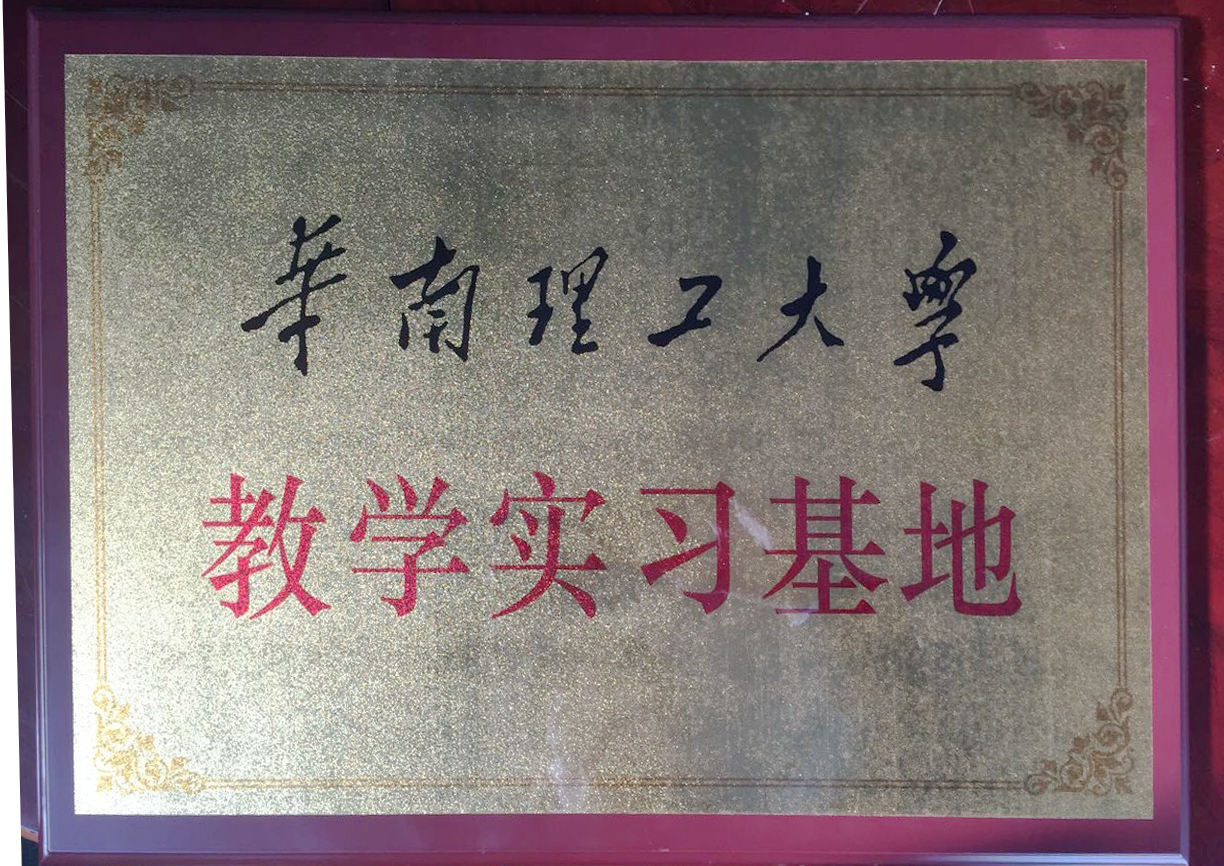 華南理工大學
教学实习基地